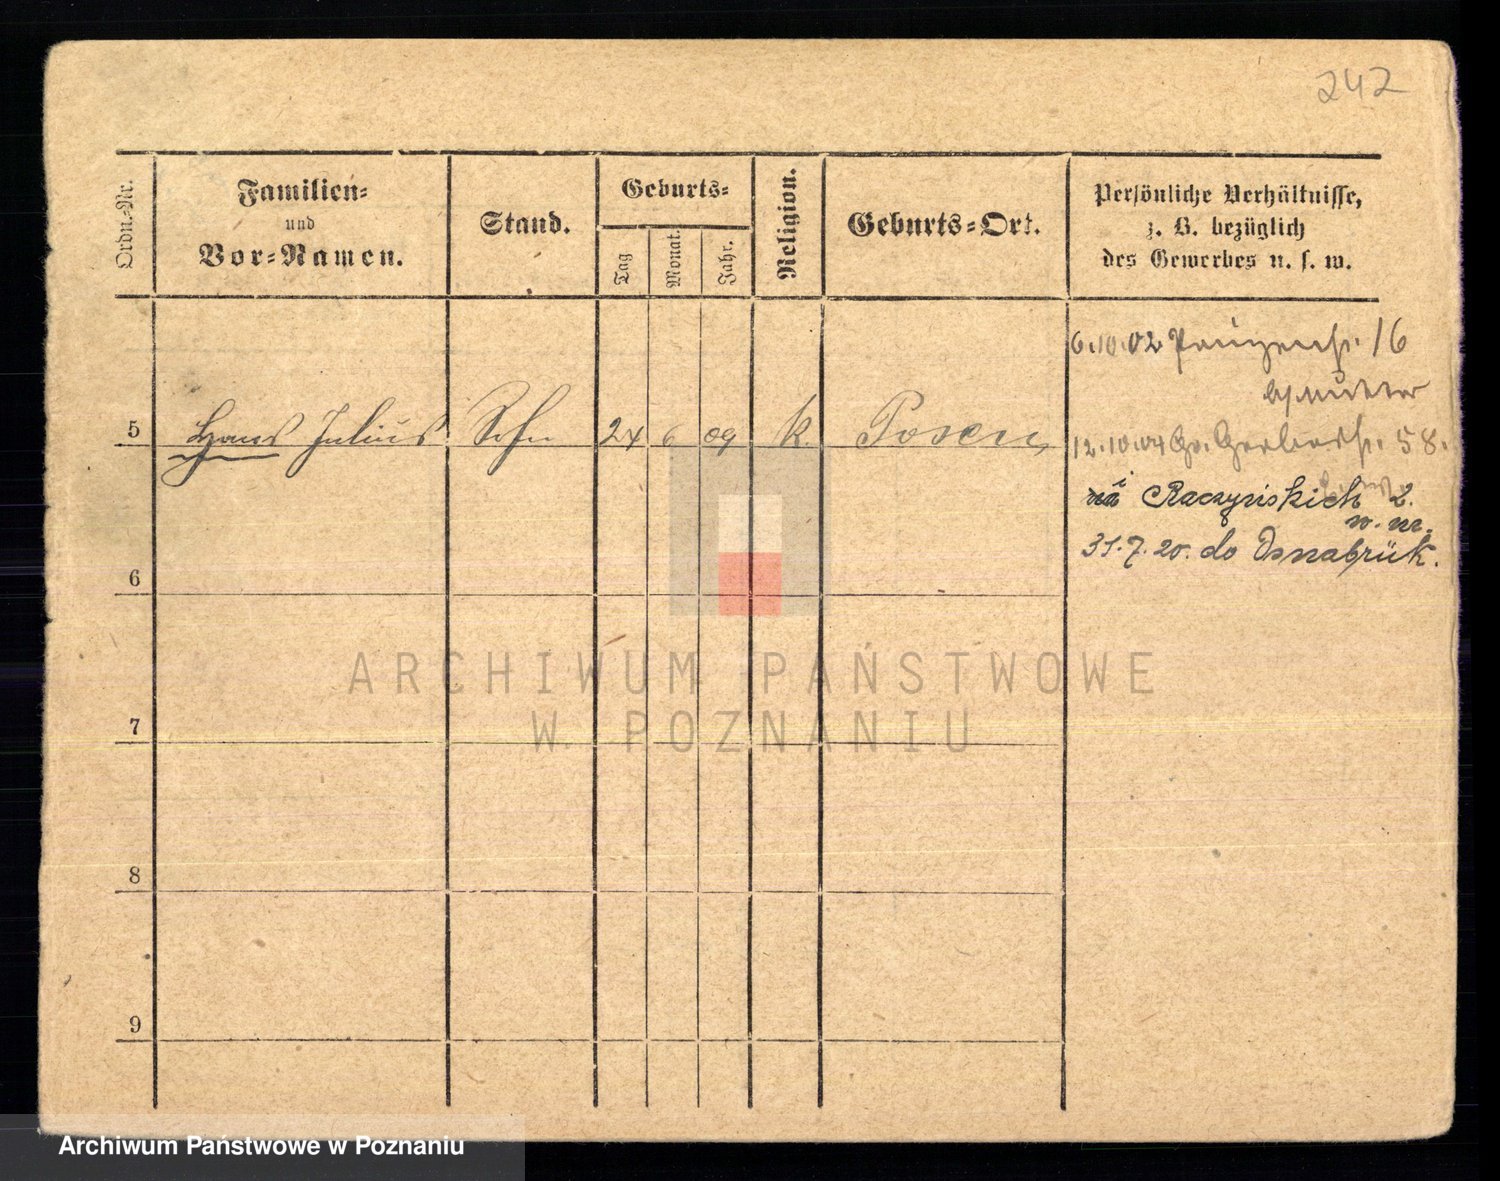 242
Ordn.-Nr.
Familien-
und
Vor-Namen.
Stand.
Geburts-
Tag
Monat.
Jahr.
Religion.
Geburts-Ort.
Persönliche Verhältnisse,
z. B. bezüglich
des Gewerbes u. s. w.
6.10.02 16
5 Hans Julius Sohn 24 6 09 k. Posen
12.10.04 Gr. Gerberstr. 58.
Raczyńskich 2.
w. m.
31.7.20. do Osnabrük.
6
7
8
9
ARCHIWUM PAŃSTWOWE
W POZNANIU
Archiwum Państwowe w Poznaniu